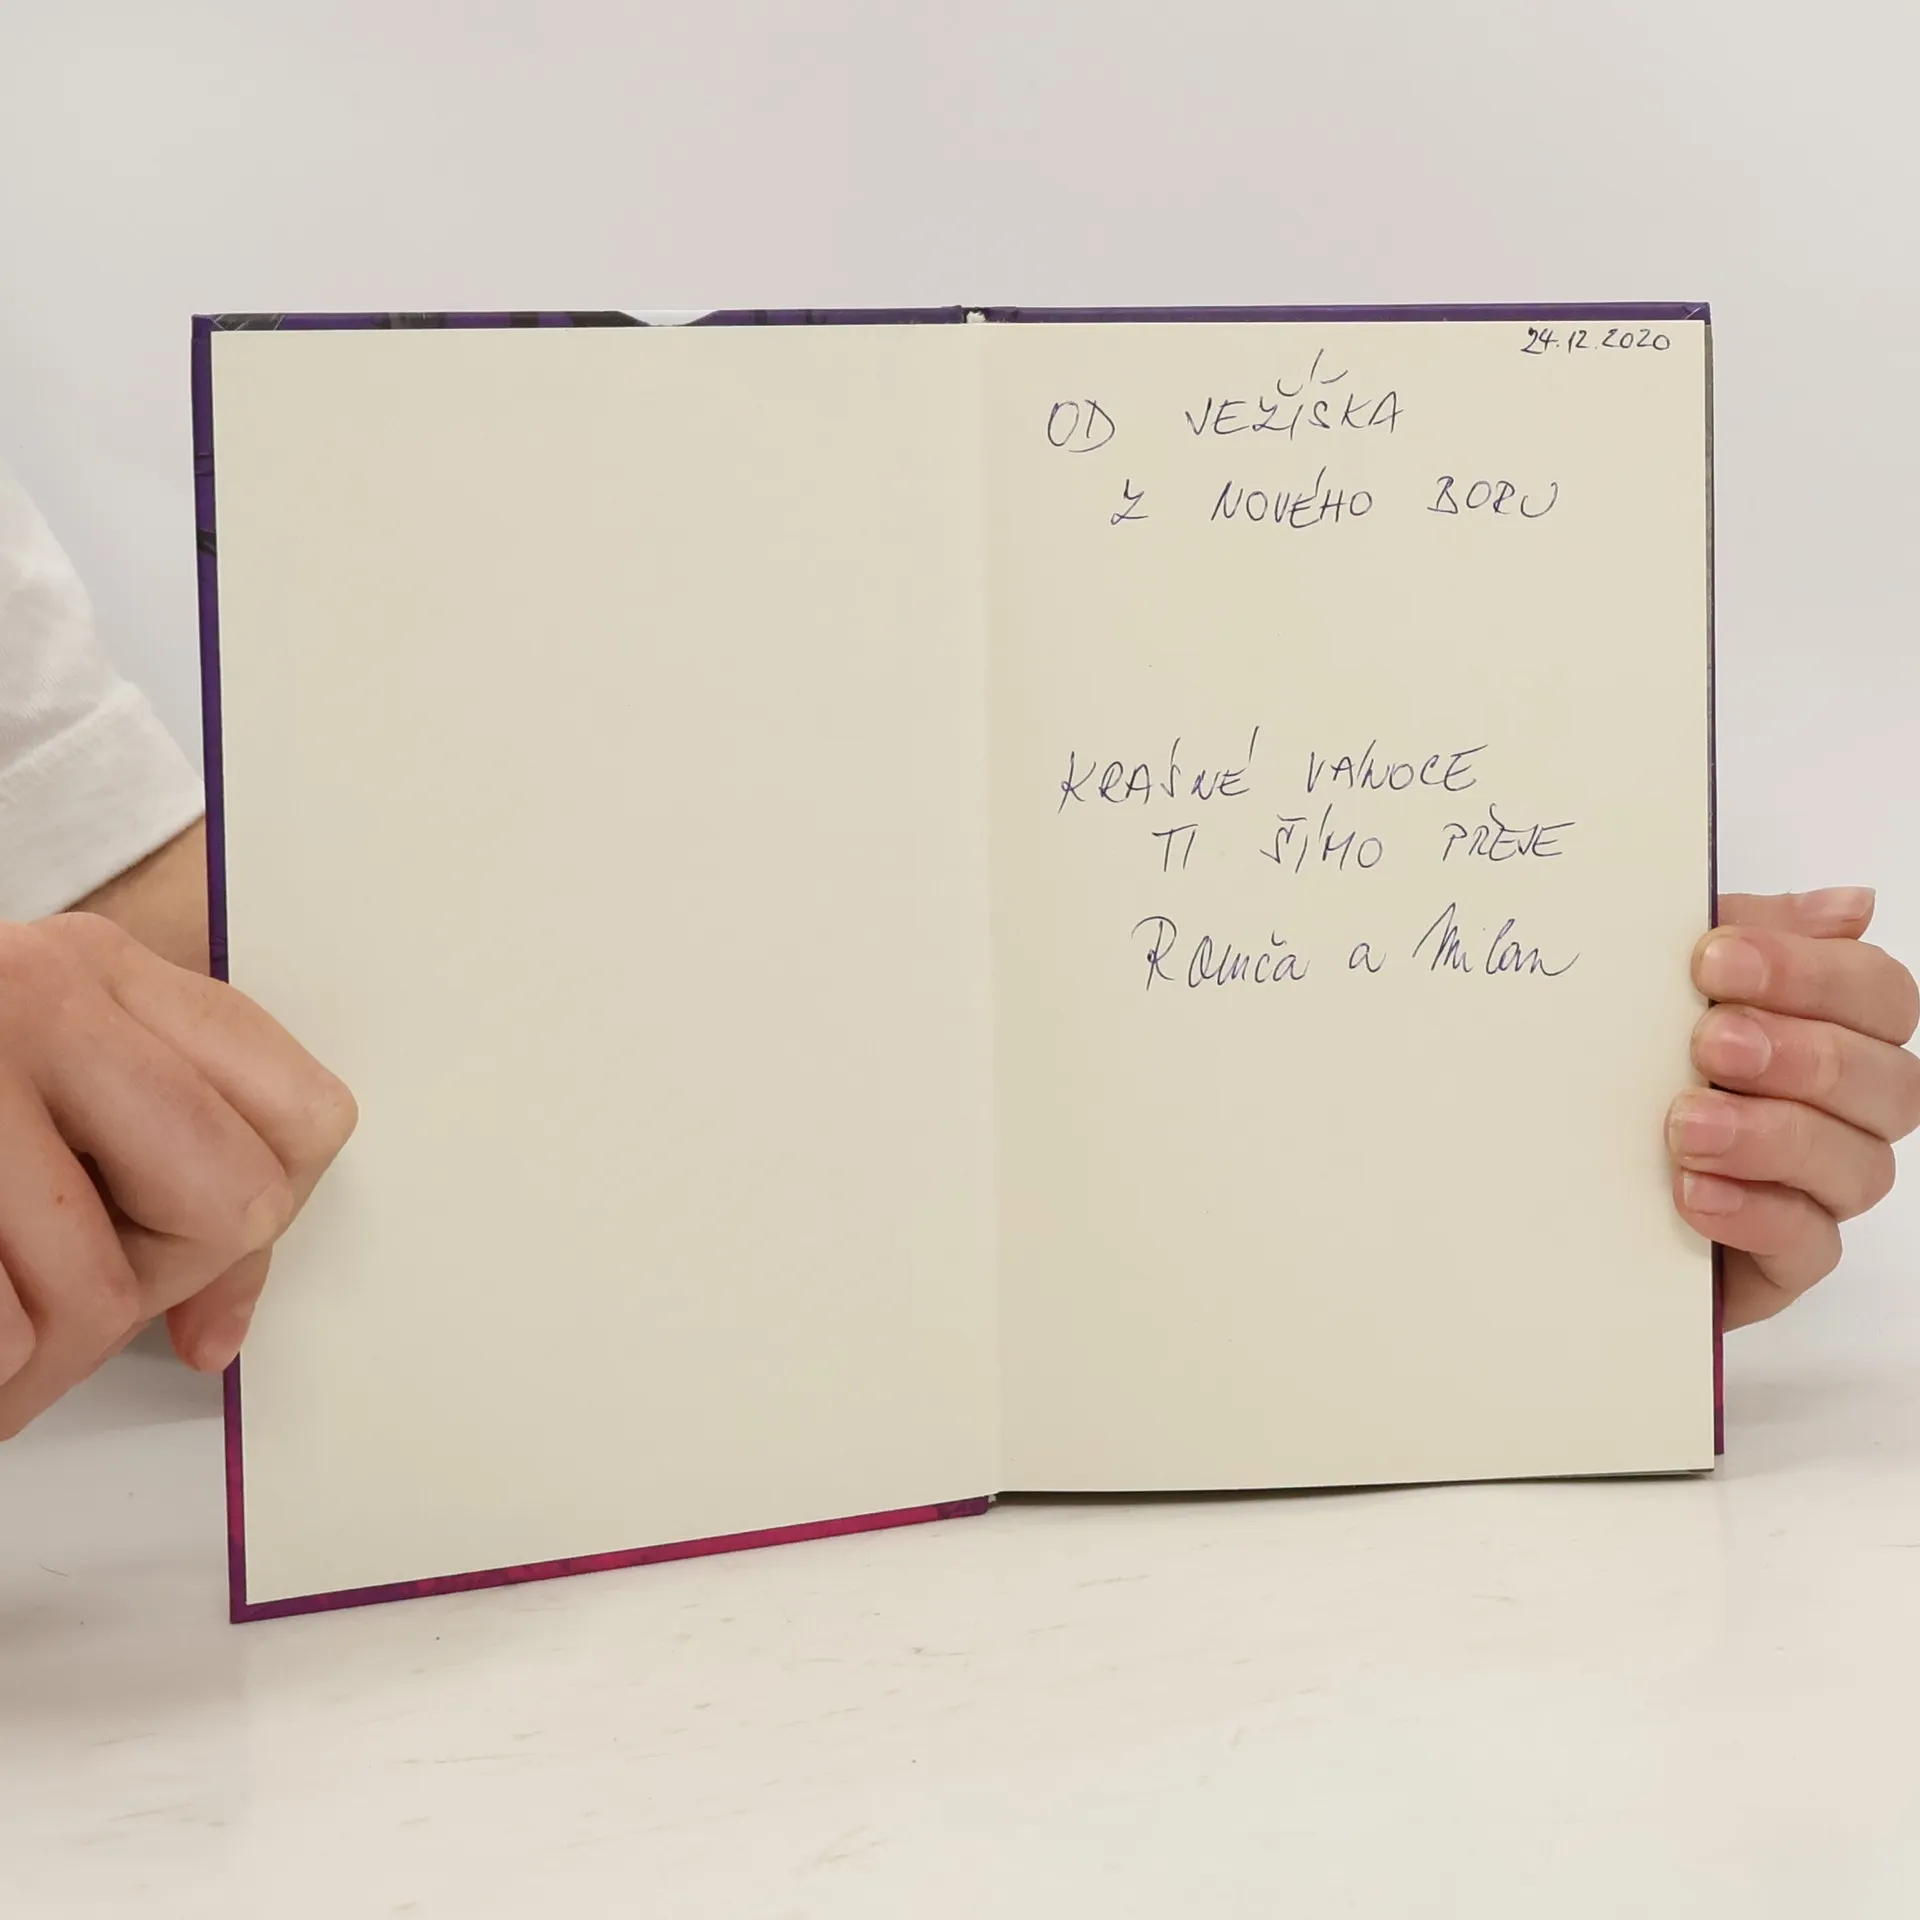 24.12.2020
OD JEŽÍŠKA
Z NOVÉHO BORU
KRÁSNÉ VÁNOCE
TI ŠÍMO PŘEJE
Romča a Milan